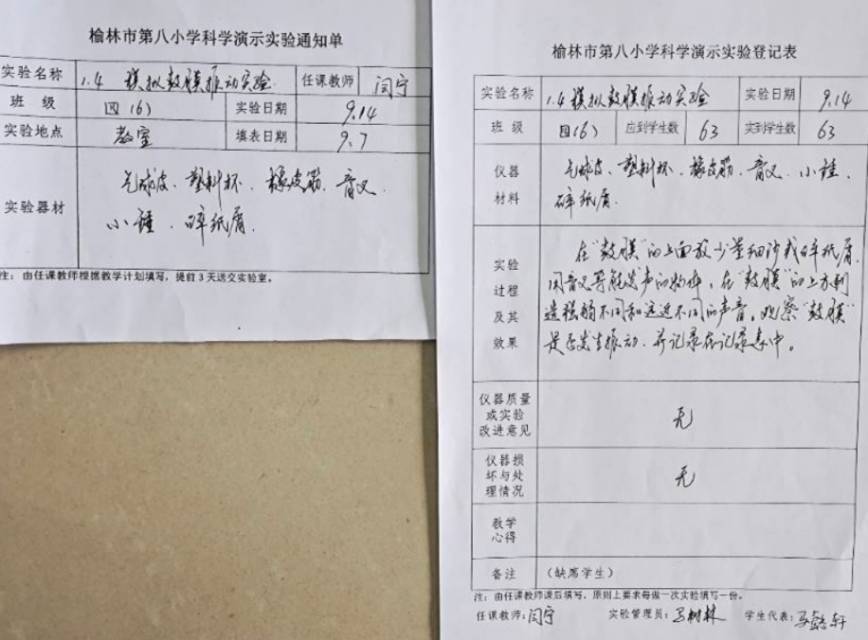 榆林市第八小学科学演示实验通知单
实验名称 1.4 模拟鼓膜振动实验 任课教师 闫宁
班 级 四(6) 实验日期 9.14
实验地点 教室 填表日期 9.7
实验器材 气球皮、塑料杯、橡皮筋、音叉、
小锤、碎纸屑。
注：由任课教师根据教学计划填写，提前3天送交实验室。
榆林市第八小学科学演示实验登记表
实验名称 1.4 模拟鼓膜振动实验 实验日期 9.14
班 级 四(6) 应到学生数 63 实到学生数 63
仪器 气球皮、塑料杯、橡皮筋、音叉、小锤、
材料 碎纸屑。
实验
过程
及其
效果
在“鼓膜”的上面放少量细沙或碎纸屑,
用音叉等能发声的物体,在“鼓膜”的上方制
造强弱不同和远近不同的声音,观察“鼓膜”
是否发生振动,并记录在记录表中。
仪器质量
或实验
改进意见
无
仪器损
坏与处
理情况
无
教学
心得
备注 (缺席学生)
注：由任课教师课后填写，原则上要求每做一次实验填写一份。
任课教师：闫宁 实验管理员：马树林 学生代表：马 轩